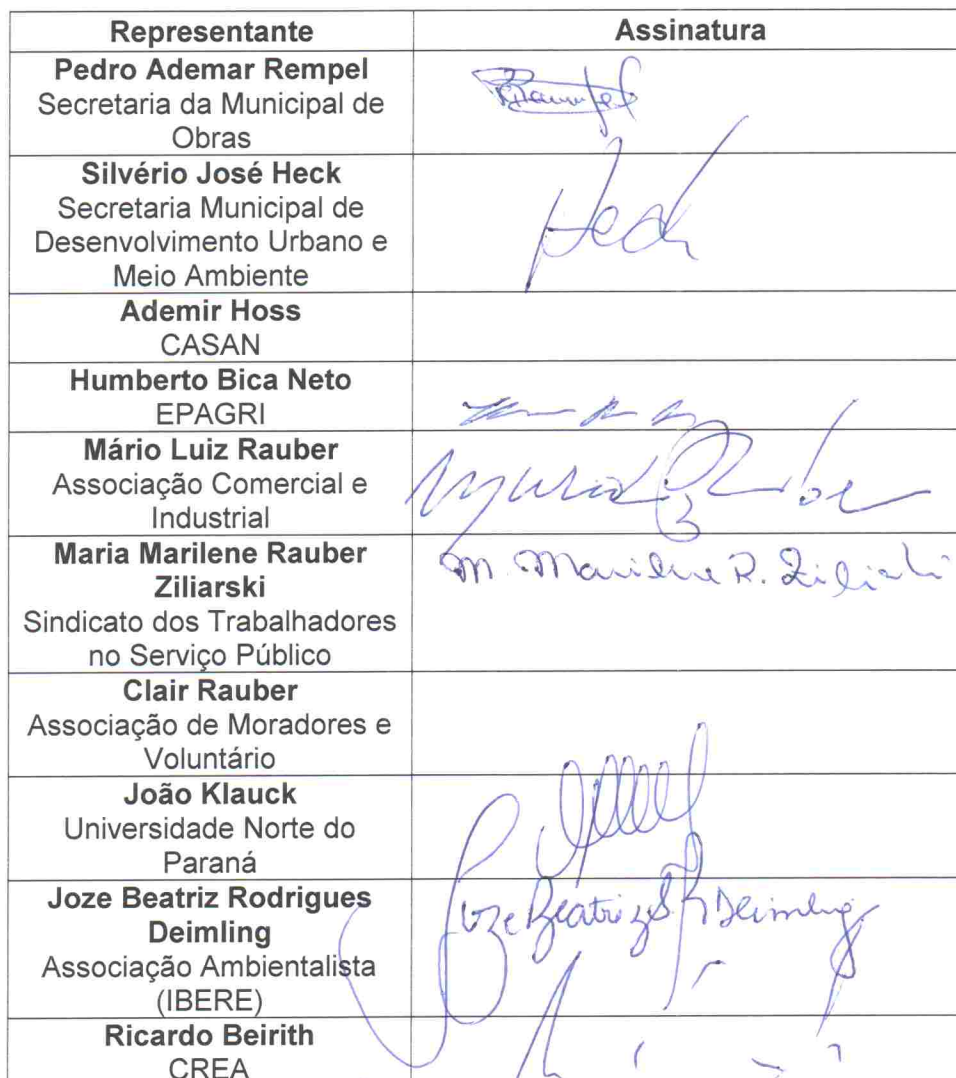 Representante Assinatura
Pedro Ademar Rempel
Secretaria da Municipal de
Obras
Silvério José Heck
Secretaria Municipal de
Desenvolvimento Urbano e
Meio Ambiente
Heck
Ademir Hoss
CASAN
Humberto Bica Neto
EPAGRI
Mário Luiz Rauber
Associação Comercial e
Industrial
Maria Marilene Rauber
Ziliarski
Sindicato dos Trabalhadores
no Serviço Público
M. Marilene R.
Clair Rauber
Associação de Moradores e
Voluntário
João Klauck
Universidade Norte do
Paraná
Joze Beatriz Rodrigues
Deimling
Associação Ambientalista
(IBERE)
Joze Beatriz R Deimling
Ricardo Beirith
CREA